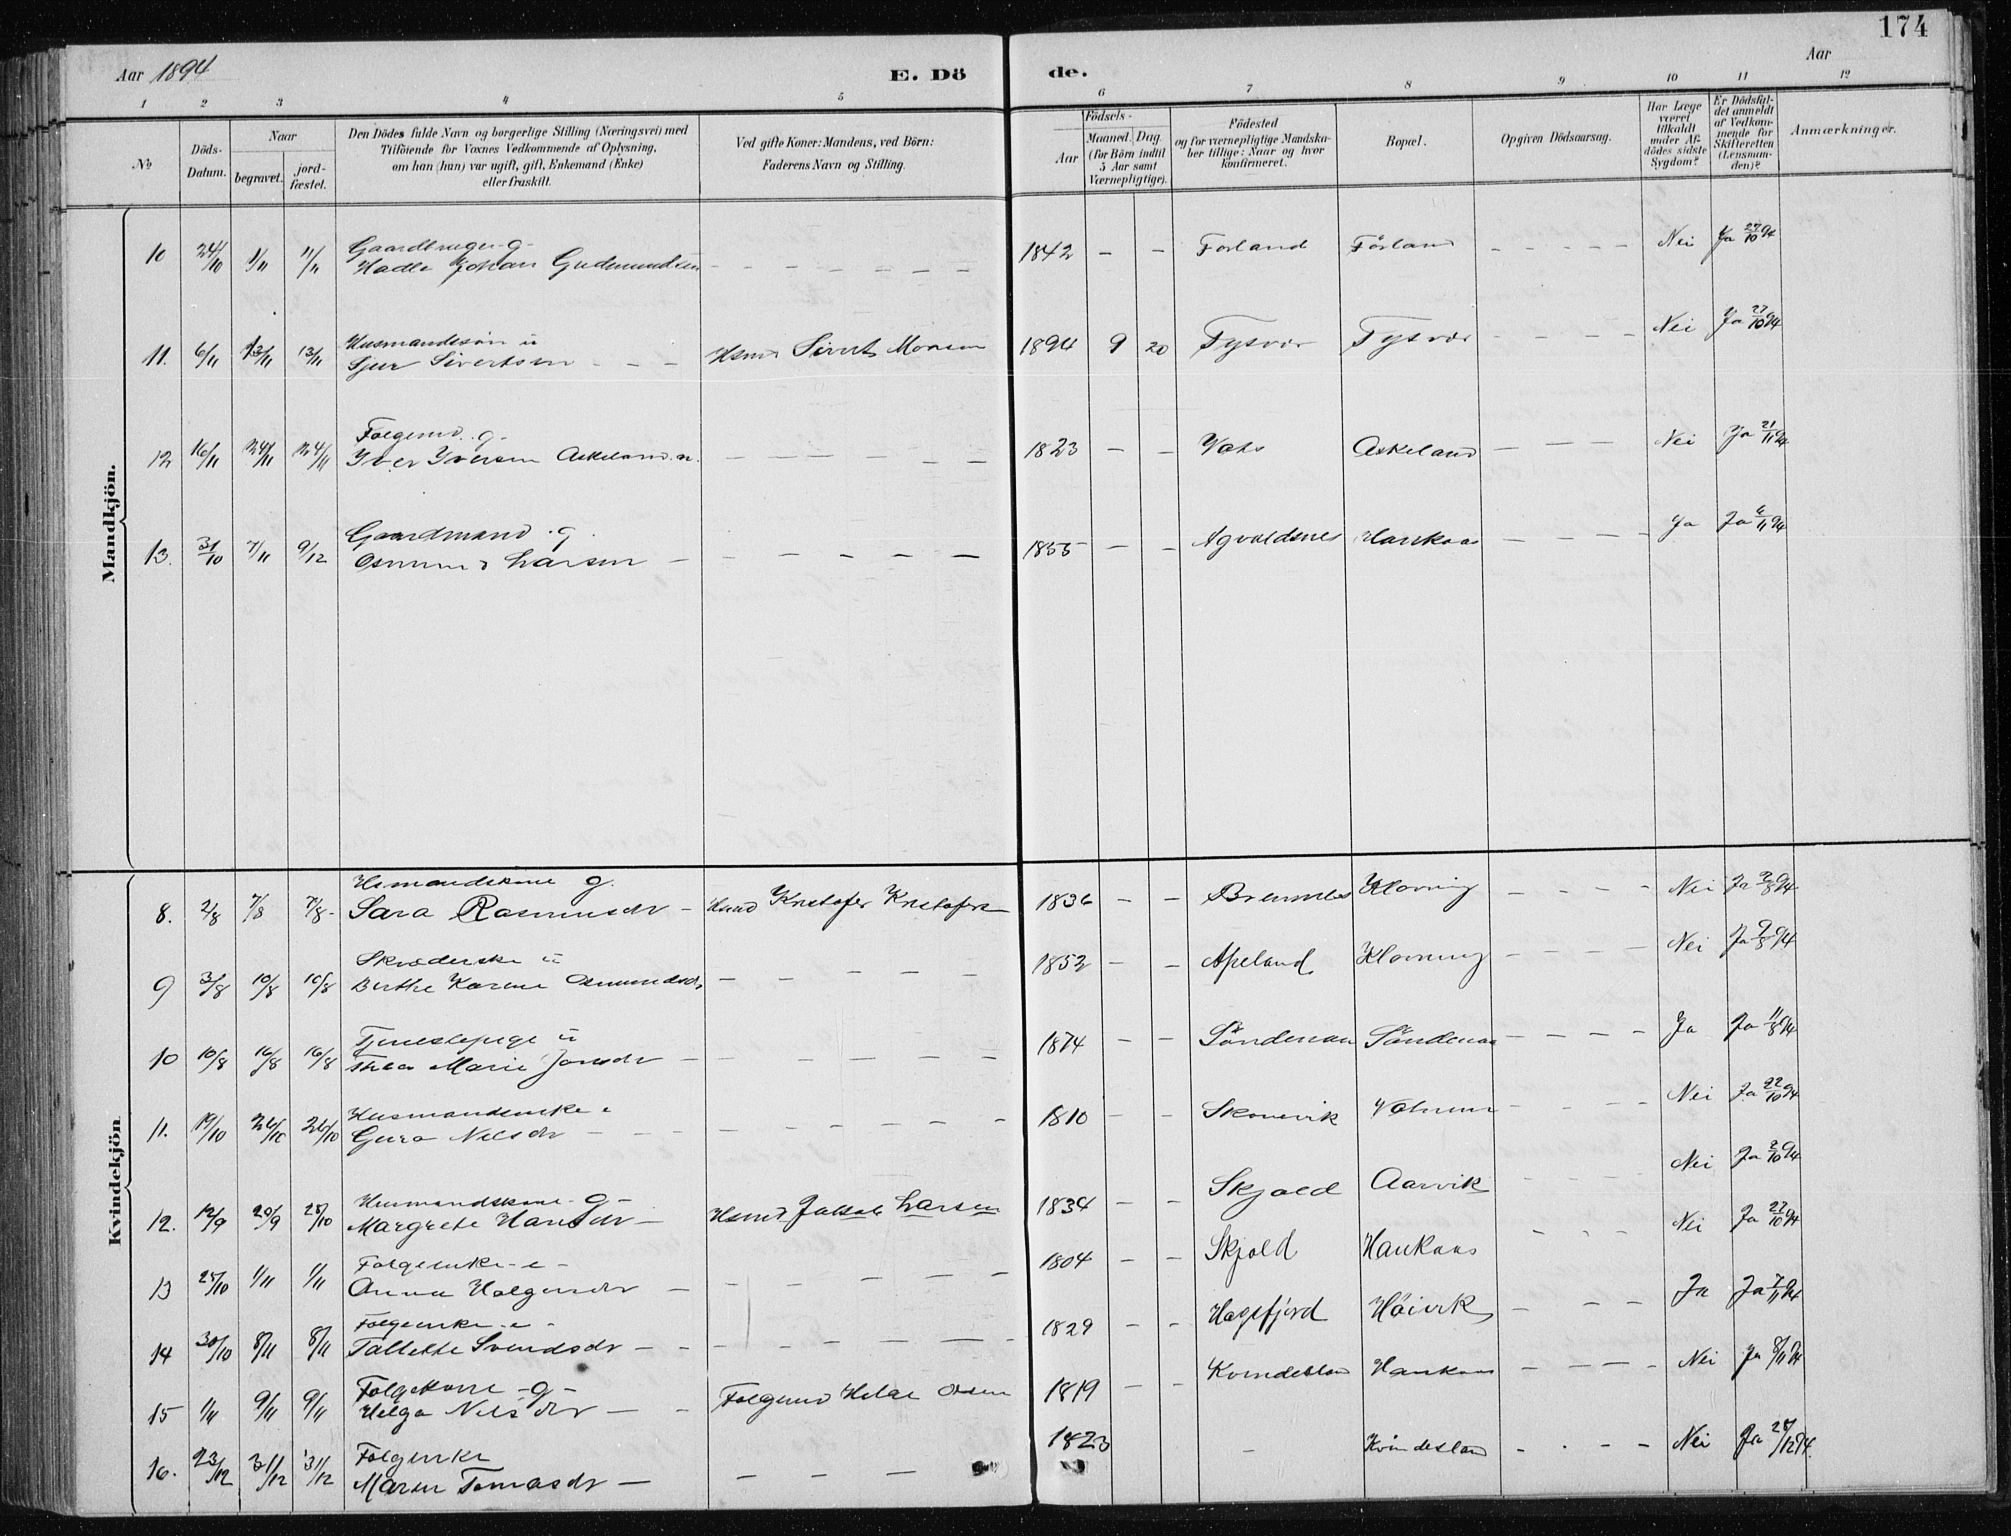 174
Aar 1894
E. Dö
de.
Aar
1 2 3 4 5 6 7 8 9 10 11 12
No
Döds-
Datum.
Naar
begravet.
jord-
fæstet.
Den Dödes fulde Navn og borgerlige Stilling (Næringsvei) med
Tilföiende for Voxnes Vedkommende af Oplysning,
om han (hun) var ugift, gift, Enkemand (Enke)
eller fraskilt.
Ved gifte Koner: Mandens, ved Börn:
Faderens Navn og Stilling.
Födsels-
Aar
Maaned. Dag
(for Börn indtil
5 Aar samt
Værnepligtige).
Födested
og for værnepligtige Mandska-
ber tillige: Naar og hvor
konfirmeret.
Bopæl.
Opgiven Dödsaarsag.
Har Læge
været
tilkaldt
under Af-
dödes sidste
Sygdom?
Er Dödsfal-
det anmeldt
af Vedkom-
mende for
Skifteretten
(Lensman-
den)?
Anmærkninger.
Mandkjön.
Gaardbruger g
10 24/10 1/11 11/11 Hadle Johan Gudmundsen 1842 - - Forland Förland Nei Ja 27/10 94
Husmandssön u
11. 6/11 13/11 13/11 Sjur Sivertsen Hsmd Sivert Monsen 1894 9 20 Tysvær Tysvær Nei Ja 27/10 94
Folgemd. g.
12 16/11 24/11 24/11 Iver Iversen Askeland 1823 - - Vats Askeland Nei Ja 21/11 94
Gaardmand g.
13. 31/10 7/11 9/12 Osmund Larsen 1855 - - Agvaldsnes Haukaas Ja Ja 6/11 94
Kvindekjön
Hsmandskone g.
8. 2/8 7/8 7/8 Sara Rasmusdr Hsmd Kristofer Kristofers 1836 - - Bremnes Klovning Nei Ja 2/8 94
Skræderske u
9 3/8 10/8 10/8 Berthe Karine Osmundsdr 1852 - - Apeland Klovning Nei Ja 9/8 94
Tjenestepige u
10 10/8 16/8 16/8 Thea Marie Jonsdr 1874 - - Söndenaa Söndenaa Ja Ja 11/8 94
Husmandsenke e
11. 19/10 26/10 26/10 Guro Nilsdr 1810 - - Skonevik Nei Ja 22/10 94
Husmandskone g
12. 12/9 20/9 28/10 Margrete Hansdr Hsmd Jakob Larsen 1834 - - Skjold Aarvik Nei Ja 2/10 94
Folgeenke e
13 25/10 1/11 1/11 Anna Helgesdr 1804 - - Skjold Haukaas Nei Ja 27/10 94
Folgeenke e
14 30/10 8/11 8/11 Tallette Svendsdr 1829 - - Hogsfjord Höivik Ja Ja 7/11 94
Folgekone g
15 1/11 9/11 9/11 Helga Nilsdr Folgemd Helge Olsen 1819 - - Kvindesland Haukaas Nei Ja 8/11 94
Folgenke
16. 23/12 31/12 31/12 Maren Tomasdr 1823 - Kvindesland Nei Ja 28/12 94.